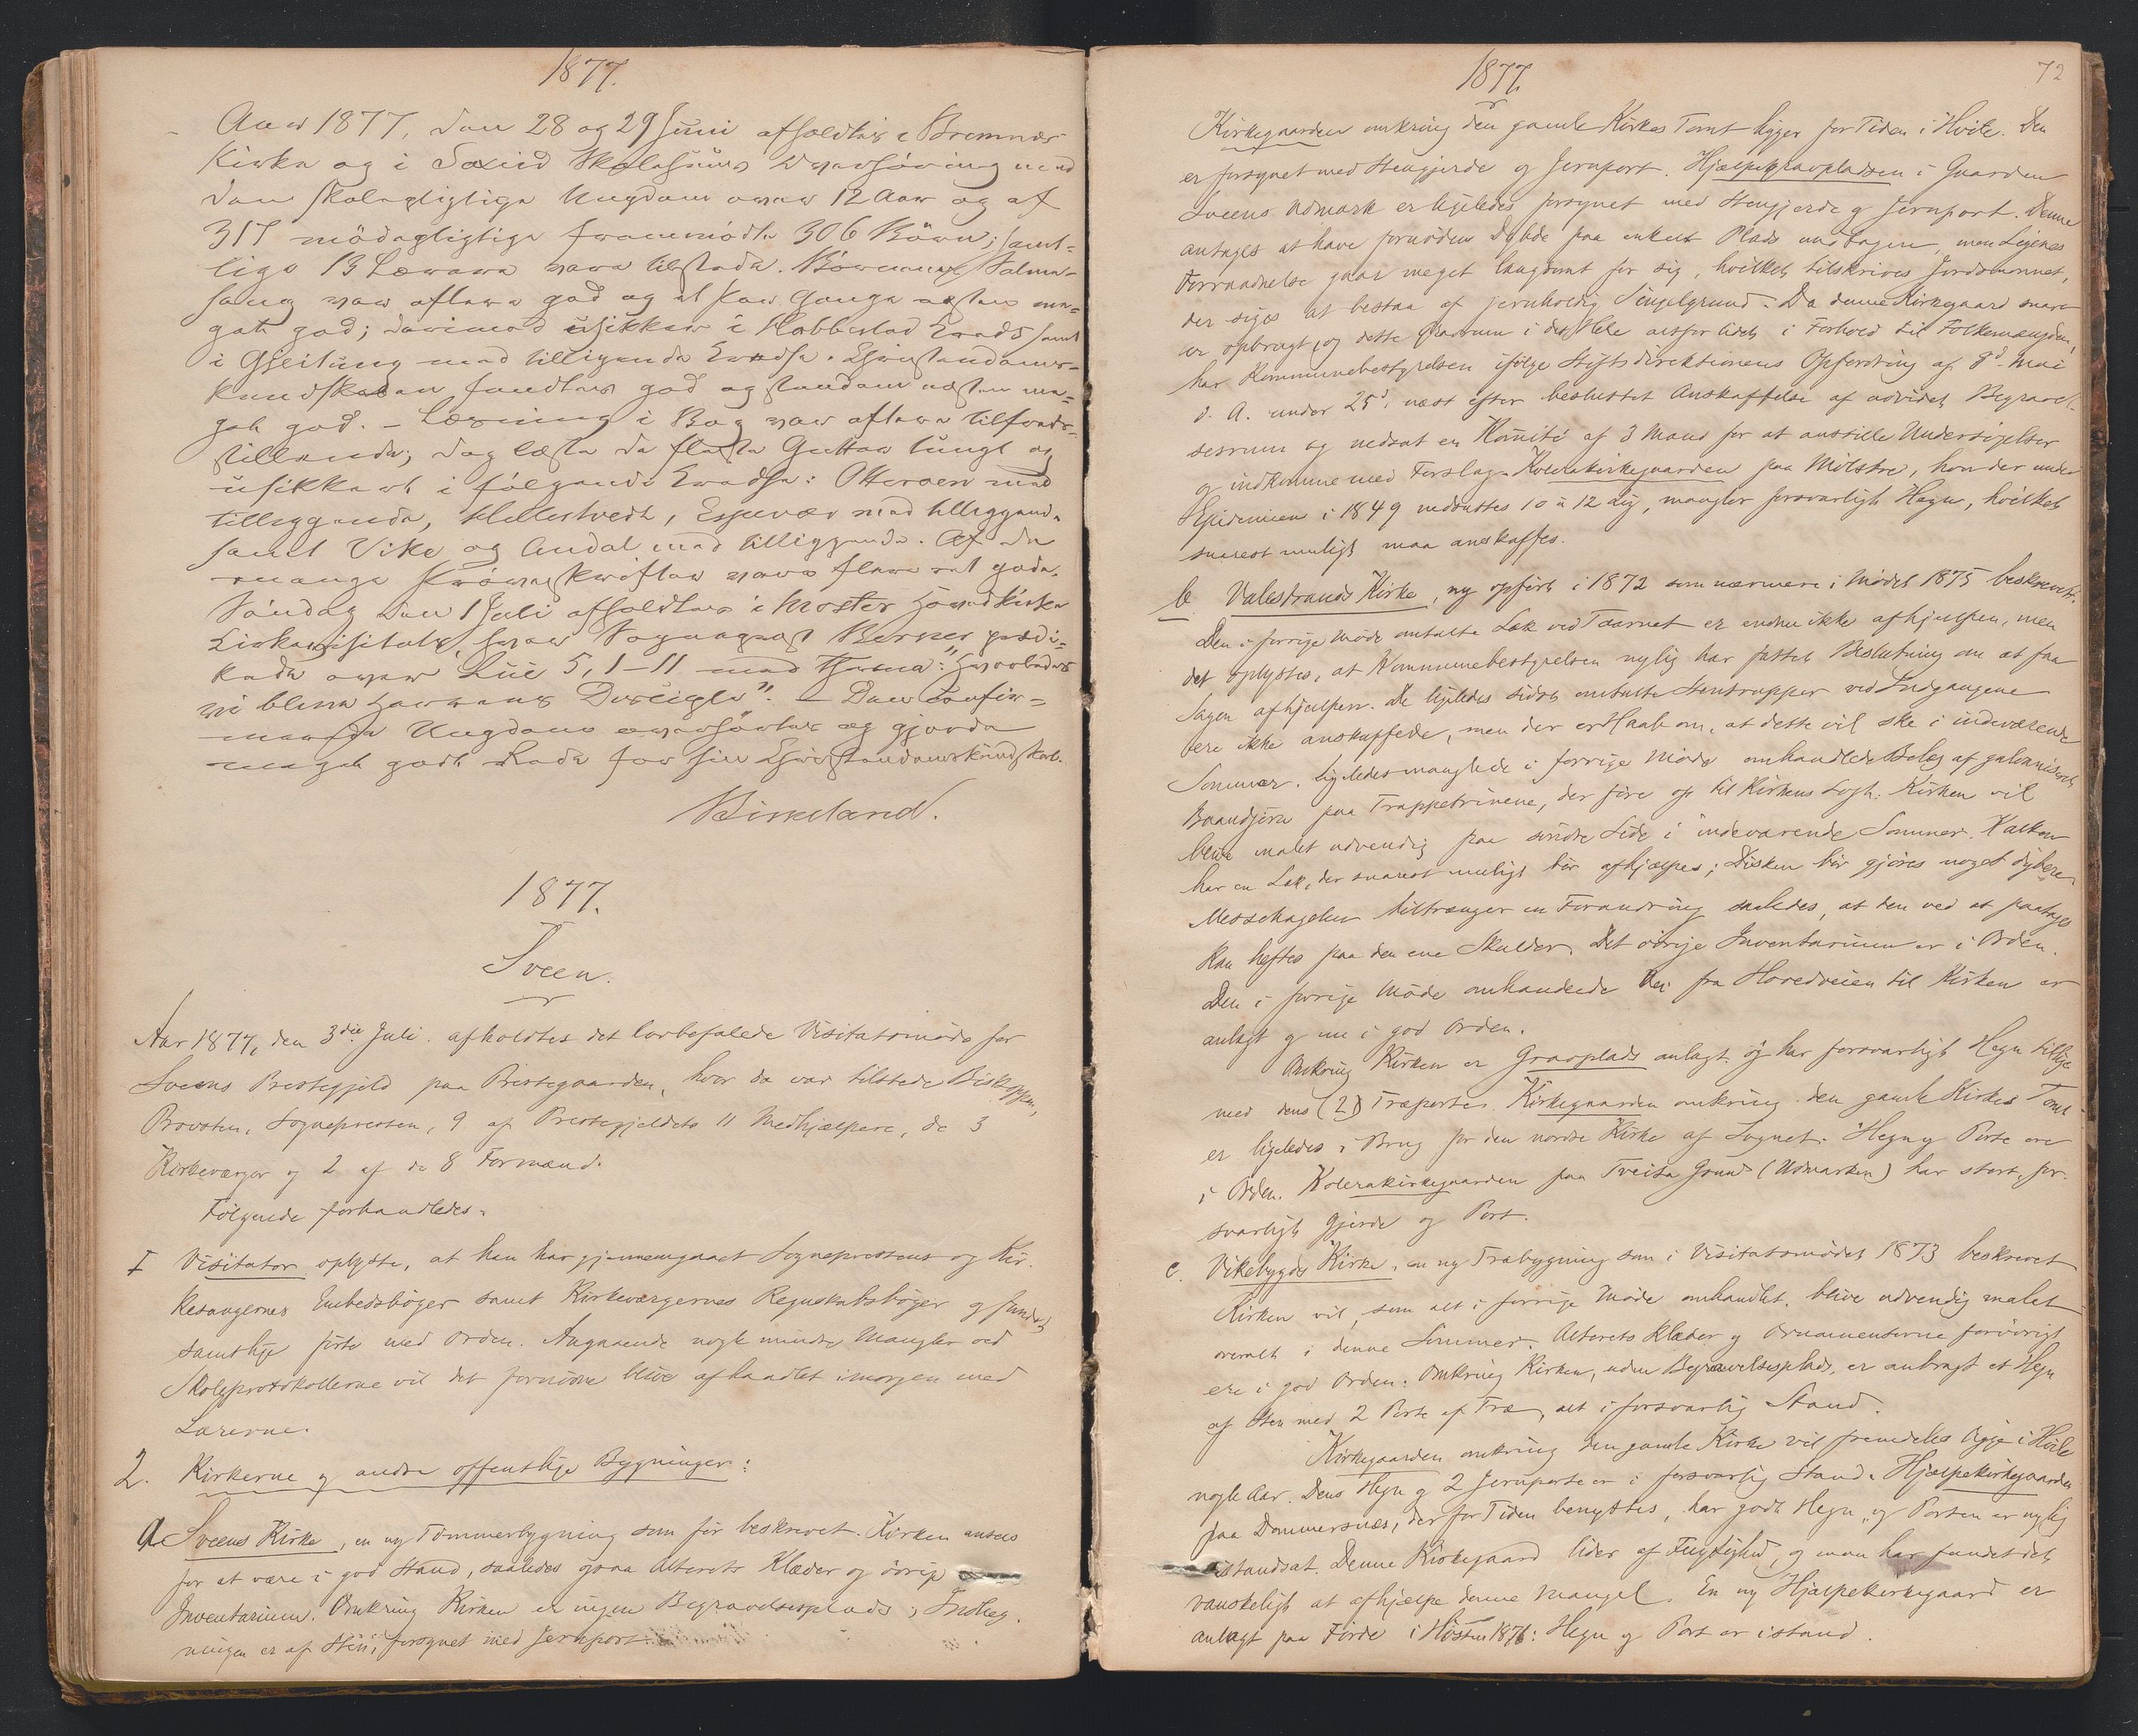 1877.
Aar 1877, den 28 og 29 Juni afholdtes i Bremnæs
Kirke og i Sæiid Skolehuus Overhøring med
den skolepligtige Ungdom over 12 Aar og af
317 mødepligtige fremmødte 306 Børn; samt-
lige 13 Lærere vare tilstede. Børnenes Salme-
sang var oftere god og et Par Gange næsten me-
get god; derimod usikker i Habbestad Kreds samt
i Gjeitung med tilliggende Kredse. Christendoms-
kundskaben fandtes god og stundom næsten me-
get god. – Læsning i Bog var oftere tilfreds-
stillende; dog læste de fleste Gutter tungt og
usikkert i følgende Kredse: Otteroen med
tilliggende, Hellestvedt, Espevær med tilliggende
samt Vike og Andal med tilliggende. Af de
mange Prøveskrifter vare flere ret gode.
Søndag den 1 Juli afholdtes i Moster Hovedkirke
Kirkevisitats, hvor Sognepræst Berner prædi-
kede over Luc 5, 1–11 med Thema: "Hvorledes
vi blive Herrens Disciple". – Den confir-
merede Ungdom overhørtes og gjorde
meget godt Rede for sin Christendomskundskab.
Birkeland.
1877.
Sveen.
Aar 1877, den 3die Juli afholdtes det lovbefalede Visitatsmøde for
Sveens Prestegjeld paa Prestegaarden, hvor da var tilstede Biskoppen,
Provsten, Sognepresten, 9 af Prestegjeldets 11 Medhjælpere, de 3
Kirkeværger og 2 af de 8 Formænd.
Følgende forhandledes.
I Visitator oplyste, at han har gjennemgaaet Sogneprestens og Kir-
kesangernes Embedsbøger samt Kirkeværgernes Regnskabsbøger og fundet
samtlige førte med Orden. Angaaende nogle mindre Mangler ved
Skoleprotokollerne vil det fornødne blive afhandlet imorgen med
Lærerne.
2. Kirkerne og andre offentlige Bygninger:
a Sveens Kirke, en ny Tømmerbygning som før beskrevet. Kirken ansees
for at være i god Stand, saaledes ogsaa Alterets Klæder og øvrige
Inventarium. Omkring Kirken er ingen Begravelsesplads; Indheg-
ningen er af Sten, forsynet med Jernport.
72
1877.
Kirkegaarden omkring den gamle Kirkes Tomt ligger for Tiden i Hvile. Den
er forsynet med Stengjerde og Jernport. Hjælpegravpladsen i Gaarden
Sveens Udmark er ligeledes forsynet med Stengjerde og Jernport. Denne
antages at have fornøden Dybde paa enkelt Plads undtagen, men Ligenes
Forraadnelse gaar meget langsomt for sig, hvilket tilskrives Jordsmonnet,
der siges at bestaa af jernholdig Singelgrund. Da denne Kirkegaard snart
er opbrugt, og dette Gravrum i det Hele er for lidet i Forhold til Folkemængden,
har Kommunebestyrelsen ifølge Stiftsdirektionens Opfordring af 8d Mai
d. A. under 25d næst efter besluttet Anskaffelse af udvidet Begravel-
sesrum og nedsat en Komité af 3 Mand for at anstille Undersøgelser
og indkomme med Forslag. Kolerakirkegaarden paa Mølstre, hvor der under
Epidemien i 1849 nedsattes 10 à 12 Lig, mangler forsvarligt Hegn, hvilket
snarest muligt maa anskaffes.
b Valestrands Kirke, ny opført i 1872 som nærmere i Mødet 1875 beskrevet.
Den i forrige Møde omtalte Læk ved Taarnet er endnu ikke afhjulpen, men
det oplystes, at Kommunebestyrelsen nylig har fattet Beslutning om at faa
Sagen afhjulpen. De ligeledes sidst omtalte Stentrapper ved Indgangene
ere ikke anskaffede, men der er Haab om, at dette vil ske i indeværende
Sommer. Ligeledes manglede i forrige Møde omhandlede Belæg af galvaniseret
Baandjern paa Trappetrinene, der føre op til Kirkens Loft. Kirken vil
blive malet udvendig paa søndre Side i indeværende Sommer. Kalken
har en Læk, der snarest muligt bør afhjælpes; Disken bør gjøres noget dybere.
Messehagelen tiltrænger en Forandring saaledes, at den ved at paatages
kan heftes paa den ene Skulder. Det øvrige Inventarium er i Orden.
Den i forrige Møde omhandlede Vei fra Hovedveien til Kirken er
anlagt og nu i god Orden.
Omkring Kirken er Gravplads anlagt og har forsvarligt Hegn tillige
med dens (2) Træporte. Kirkegaarden omkring den gamle Kirkes Tomt
er ligeledes i Brug for den nordre Kirke af Sognet. Hegn og Porte ere
i Orden. Kolerakirkegaarden paa Tveita Grund (Udmarken) har stort, for-
svarligt Gjerde og Port.
c. Vikebygds Kirke, en ny Træbygning som i Visitatsmødet 1873 beskrevet
Kirken vil, som alt i forrige Møde omhandlet, blive udvendig malet
overalt i denne Sommer. Alterets Klæder og Ornamenterne forøvrigt
ere i god Orden. Omkring Kirken, uden Begravelsesplads, er anbragt et Hegn
af Sten med 2 Porte af Træ, alt i forsvarlig Stand.
Kirkegaarden omkring den gamle Kirke vil fremdeles ligge i Hvile
nogle Aar. Dens Hegn og 2 Jernporte er i forsvarlig Stand. Hjælpekirkegaarden
paa Dommersnæs, der for Tiden benyttes, har godt Hegn, og Porten er nylig
istandsat. Denne Kirkegaard lider af Fugtighed, og man har fundet det
vanskeligt at afhjælpe denne Mangel. En ny Hjælpekirkegaard er
anlagt paa Førde i Høsten 1876: Hegn og Port er istand.